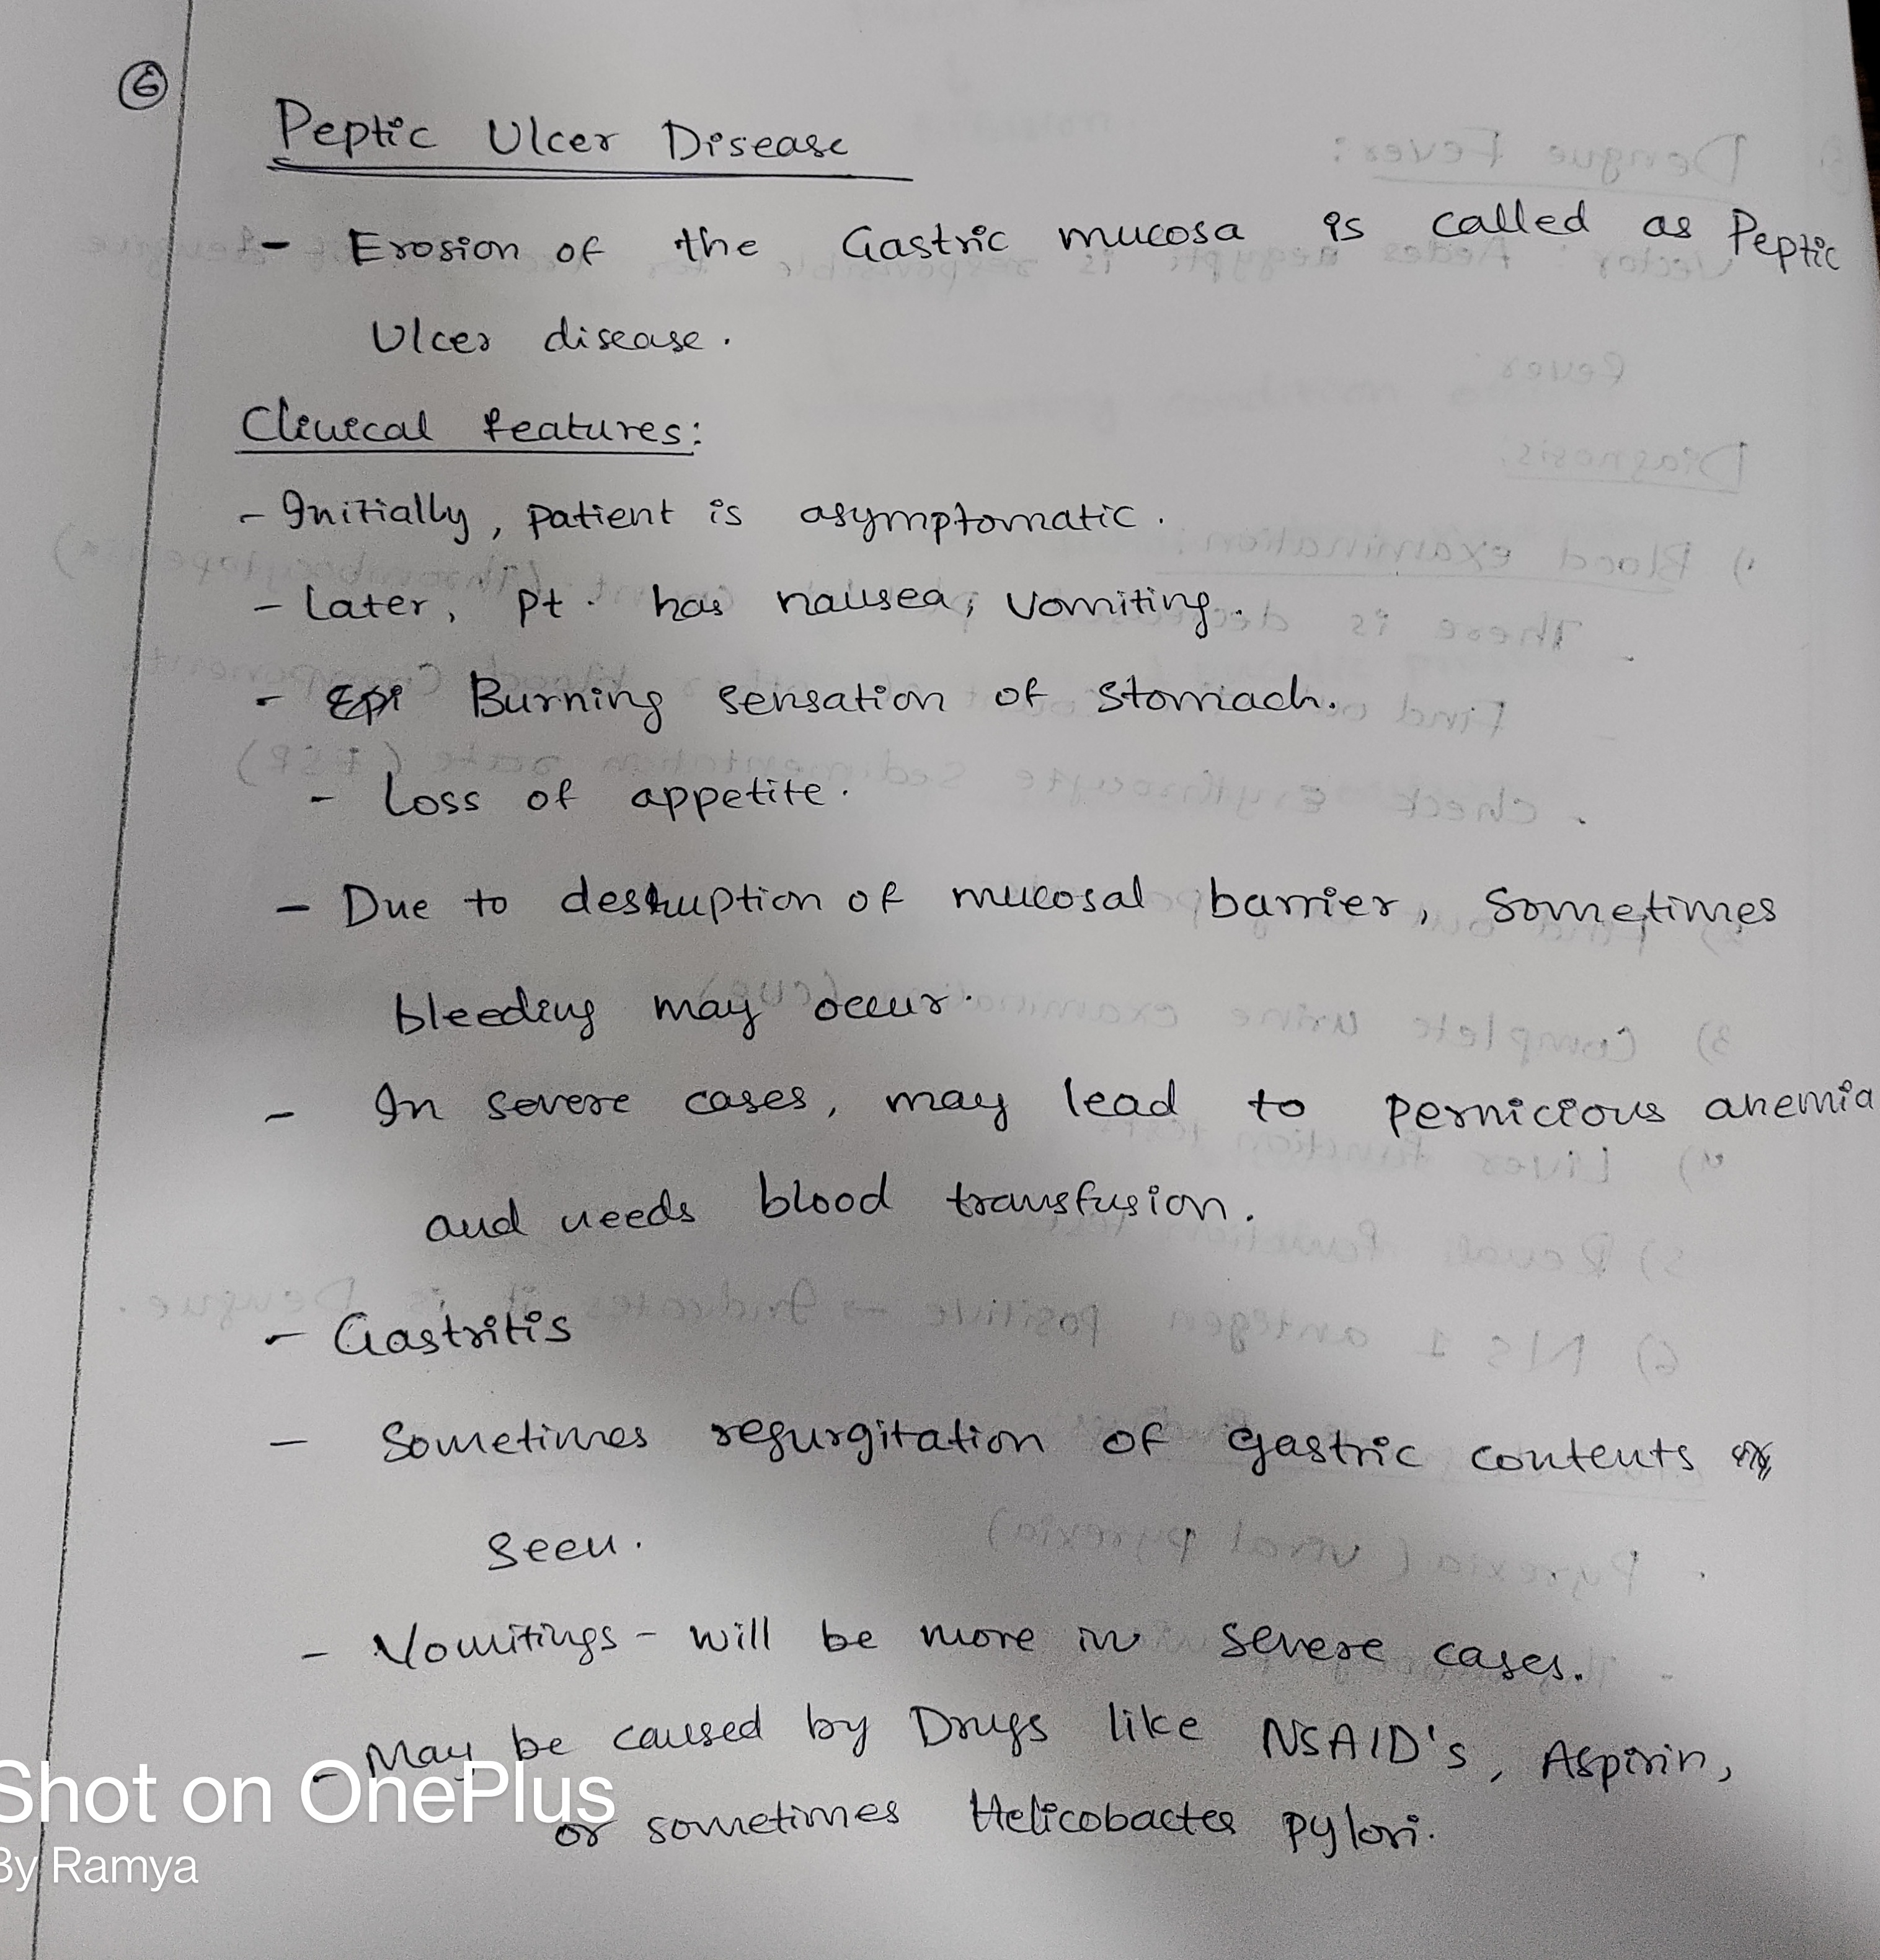 6
Peptic Ulcer Disease
- Erosion of the Gastric mucosa is called as Peptic
Ulcer disease.
Clinical features:
- Initially, patient is asymptomatic.
- Later, pt. has nausea, vomiting.
- Epi Burning sensation of stomach.
- Loss of appetite.
- Due to destruption of mucosal barrier, sometimes
bleeding may occur.
- In severe cases, may lead to pernicious anemia
and needs blood transfusion.
- Gastritis
- Sometimes regurgitation of gastric contents
seen.
- Vomitings - will be more in severe cases.
- May be caused by Drugs like NSAID's, Aspirin,
or sometimes Helicobacter pylori.
Shot on OnePlus
By Ramya